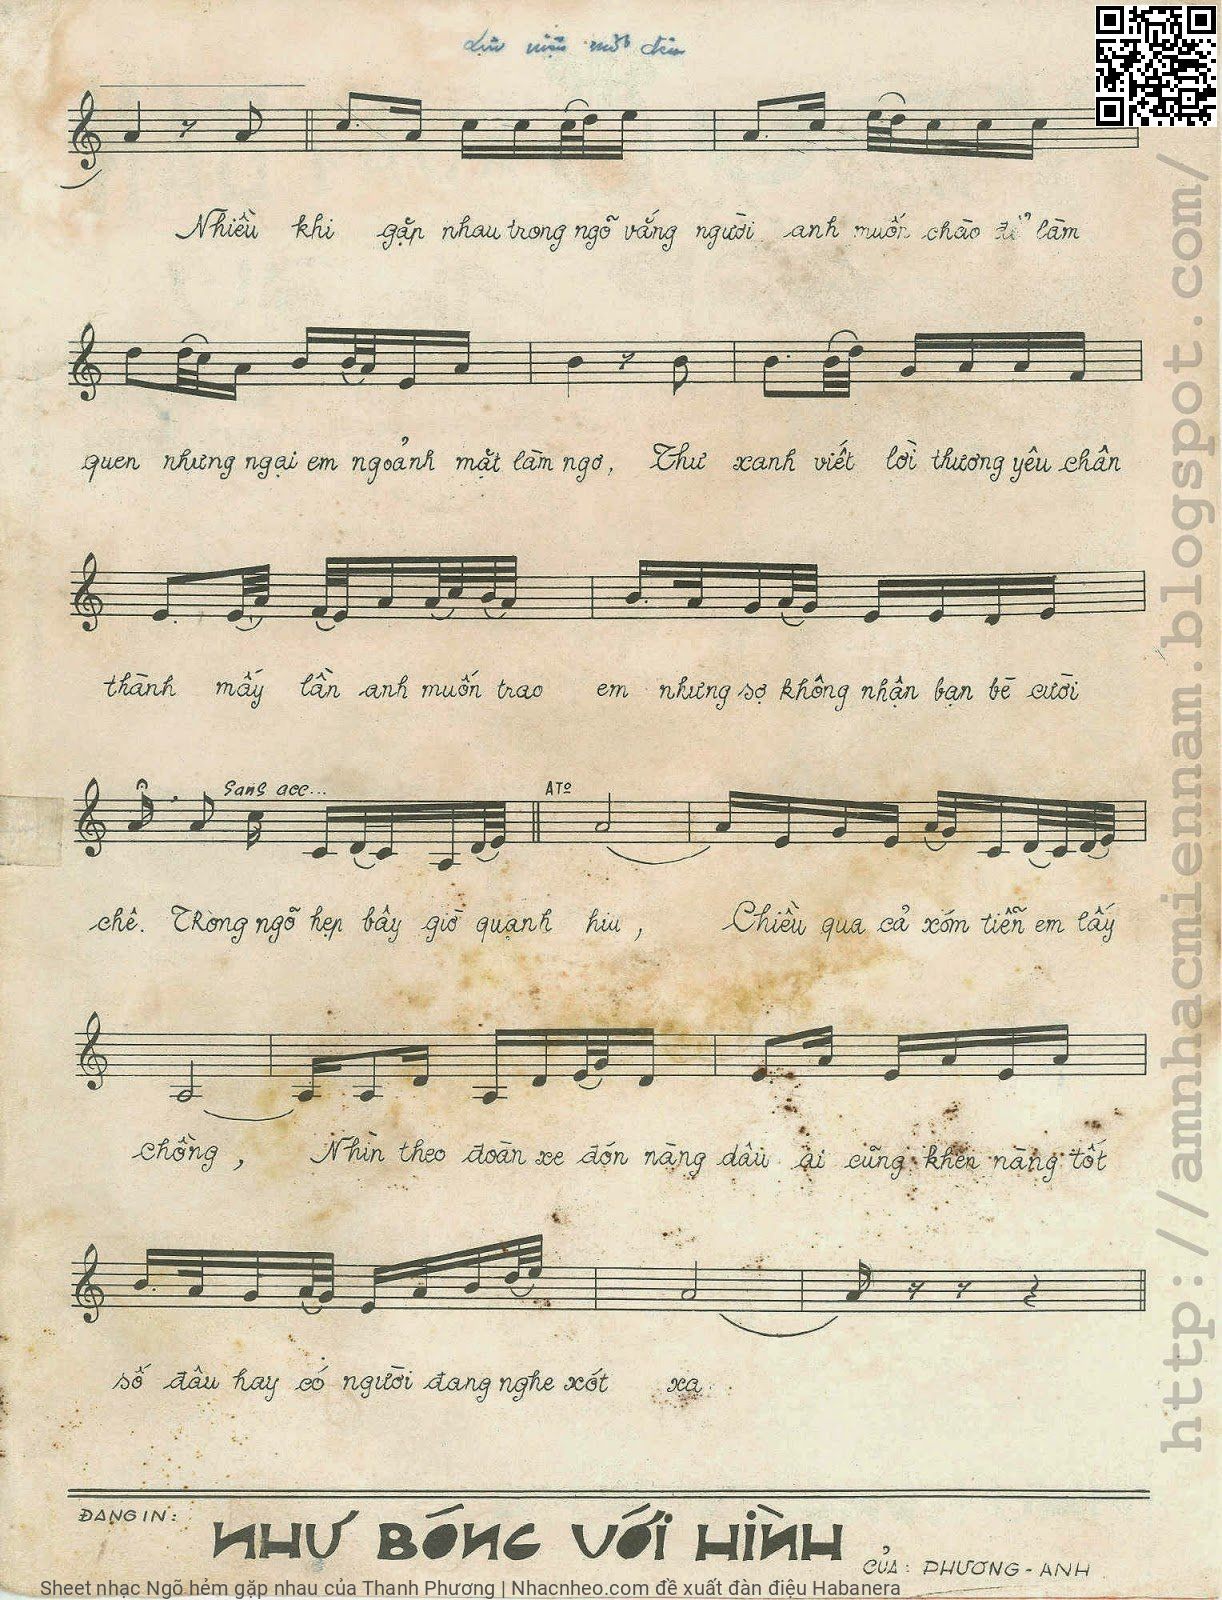 Nhiều khi gặp nhau trong ngõ vắng người anh muốn chào để làm
quen nhưng ngại em ngoảnh mặt làm ngơ, Thư xanh viết lời thương yêu chân
thành mấy lần anh muốn trao em nhưng sợ không nhận bạn bè cười
Sans acc... ATO
chê. TRong ngõ hẹp bây giờ quạnh hiu, Chiều qua cả xóm tiễn em lấy
chồng, Nhìn theo đoàn xe đón nàng dâu ai cũng khen nàng tốt
số đâu hay có người đang nghe xót xa
ĐANG IN: NHƯ BÓNG VỚI HÌNH CỦA: PHƯƠNG-ANH
Sheet nhạc Ngõ hẻm gặp nhau của Thanh Phương | Nhacnheo.com đề xuất đàn điệu Habanera
http://amnhacmiennam.blogspot.com/